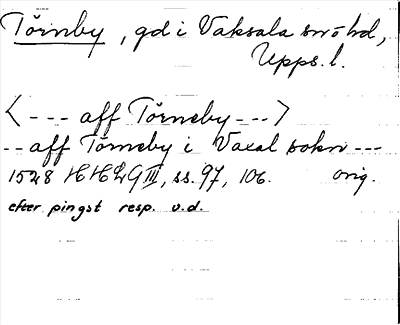 Törnby, gd i Vaksala sn o hd,
Upps. l.
< --- aff Törneby --- >
-- aff Törneby i Vaxal sokn ---
1528 HH LG III, ss. 97, 106. orig.
efter pingst resp. u.d.